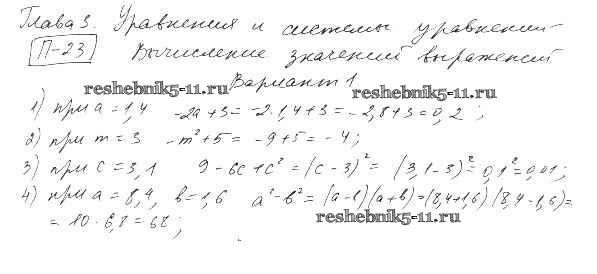 Глава 3. Уравнения и системы уравнений
П-23 Вычисление значений выражений
Вариант 1
reshebnik5-11.ru reshebnik5-11.ru
1) при a = 1,4 -2a+3 = -2·1,4+3 = -2,8+3 = 0,2 ;
2) при m = 3 -m²+5 = -9+5 = -4;
3) при c = 3,1 9-6c+c² = (c-3)² = (3,1-3)² = 0,1² = 0,01;
4) при a = 8,4, b = 1,6 a²-b² = (a-b)(a+b) = (8,4+1,6)(8,4-1,6) =
= 10·6,8 = 68;
reshebnik5-11.ru